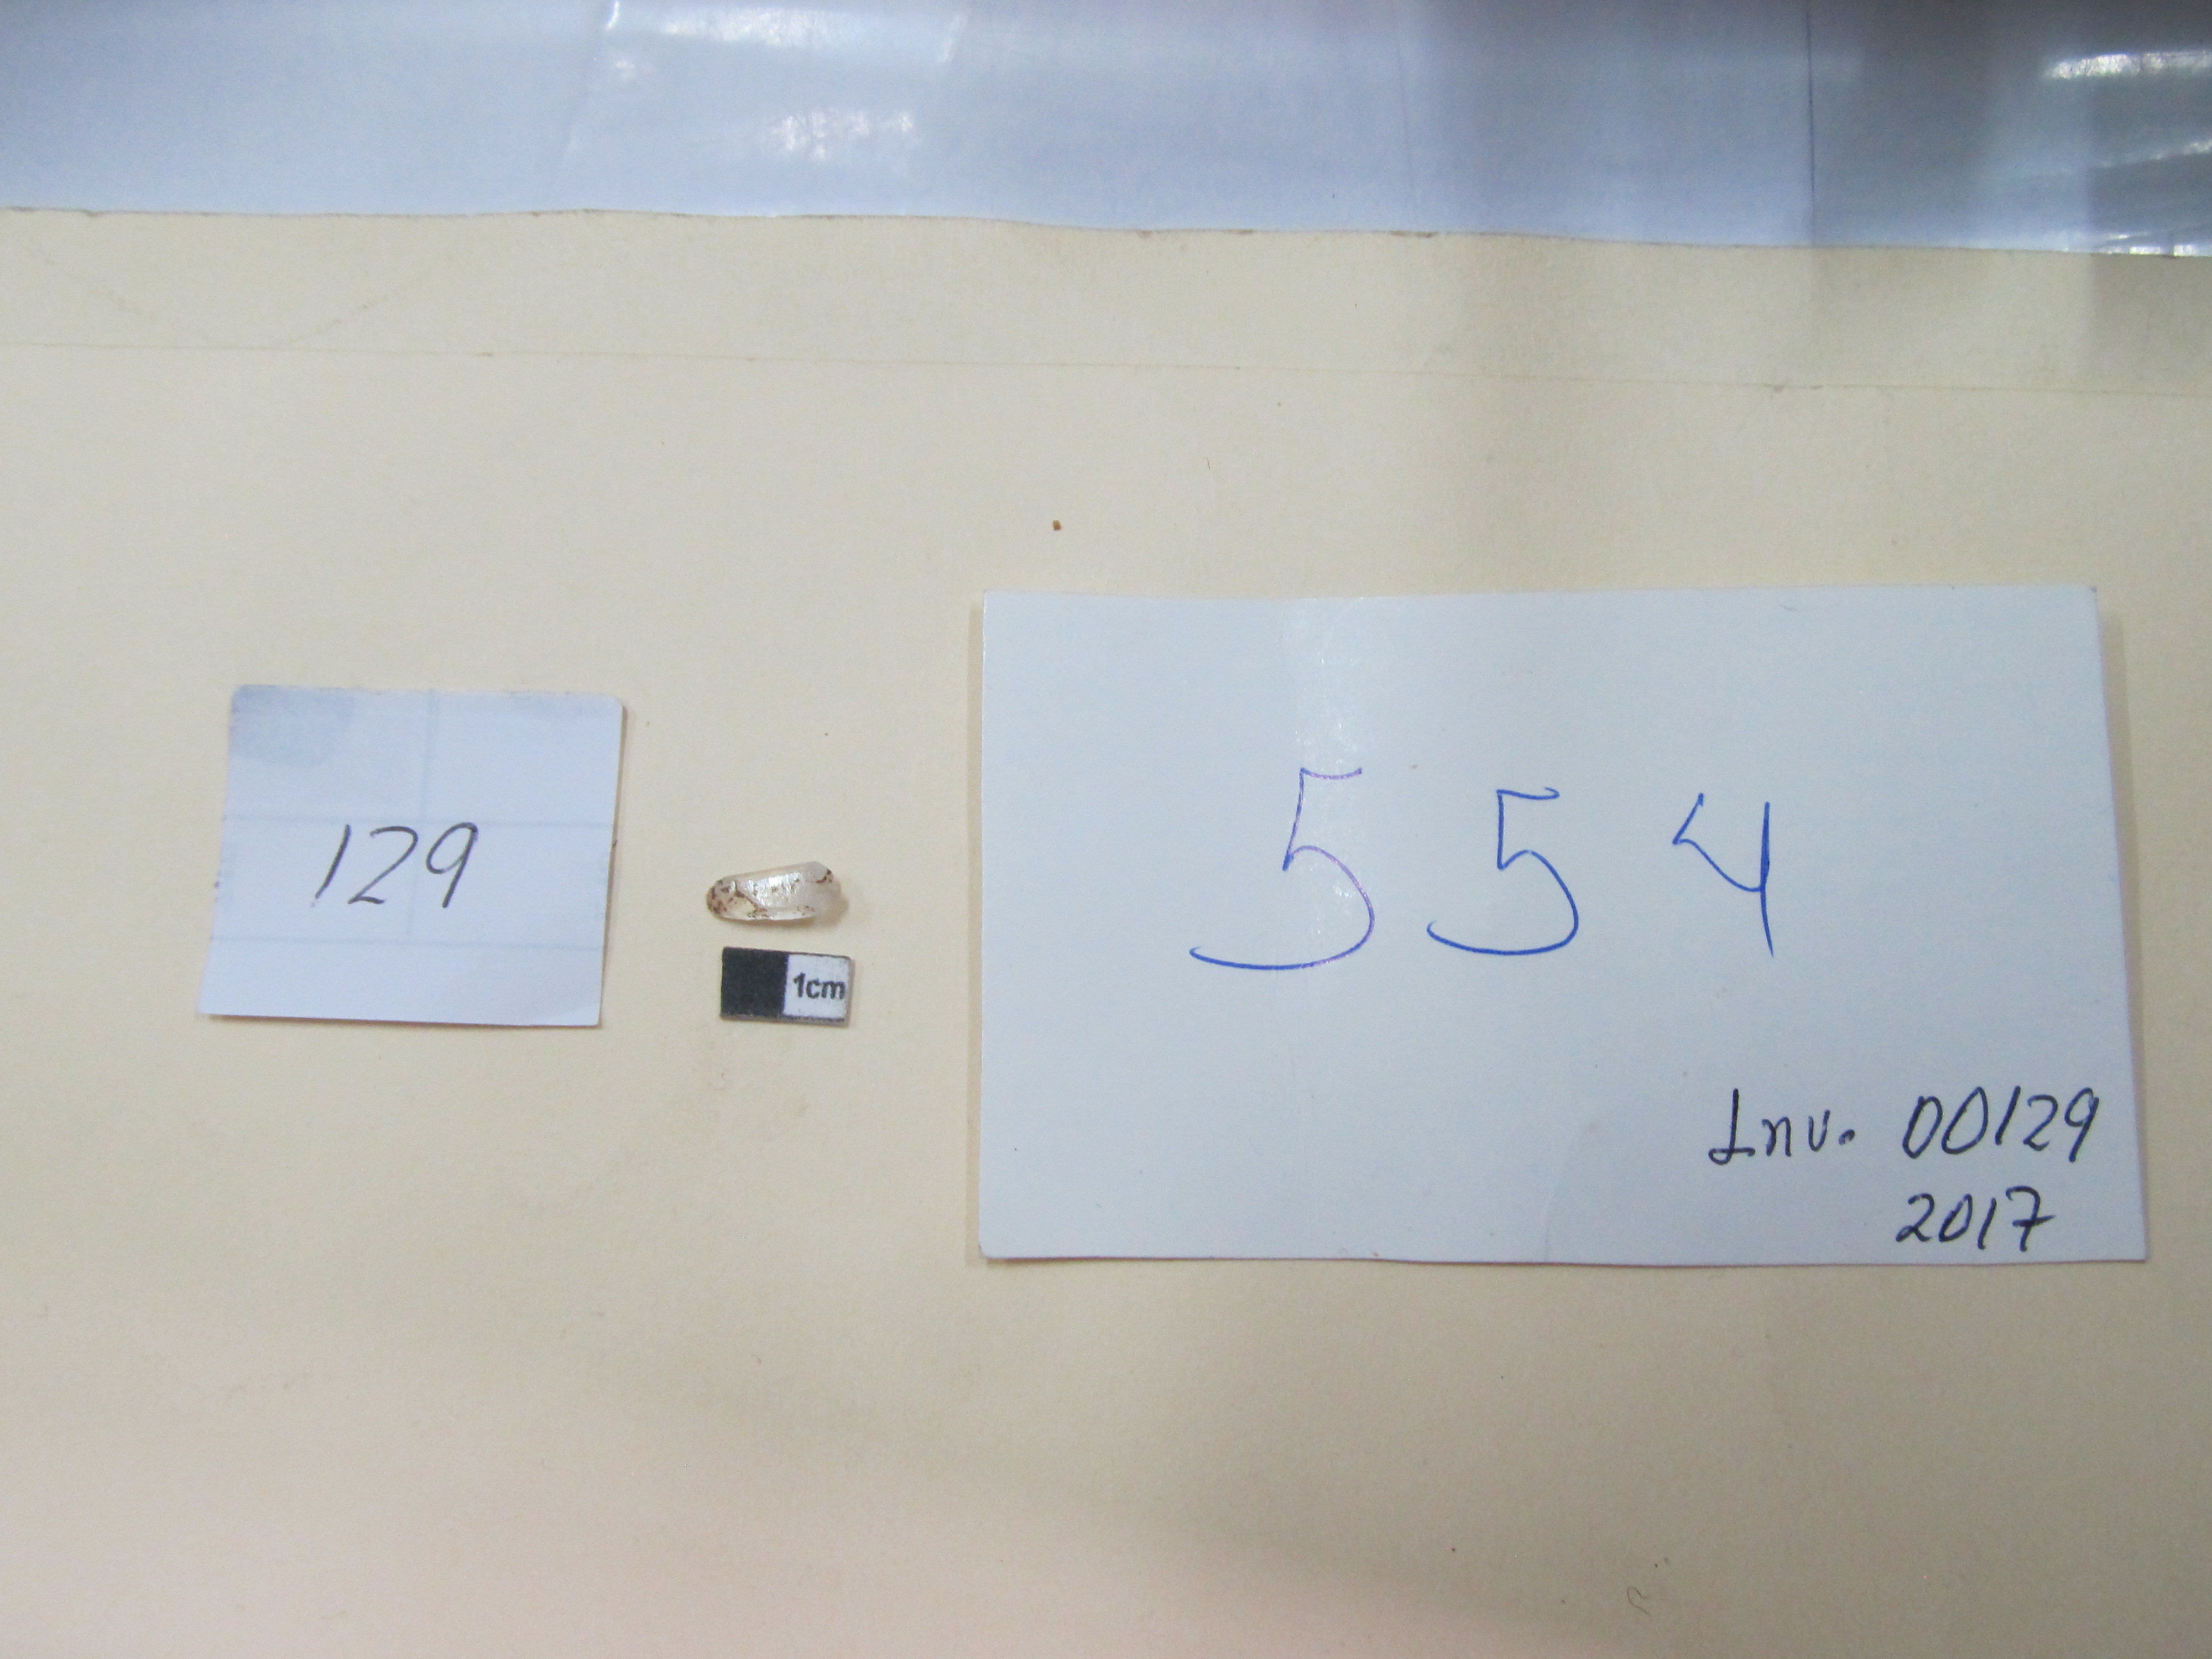 129
1cm
554
Inv. 00129
2017